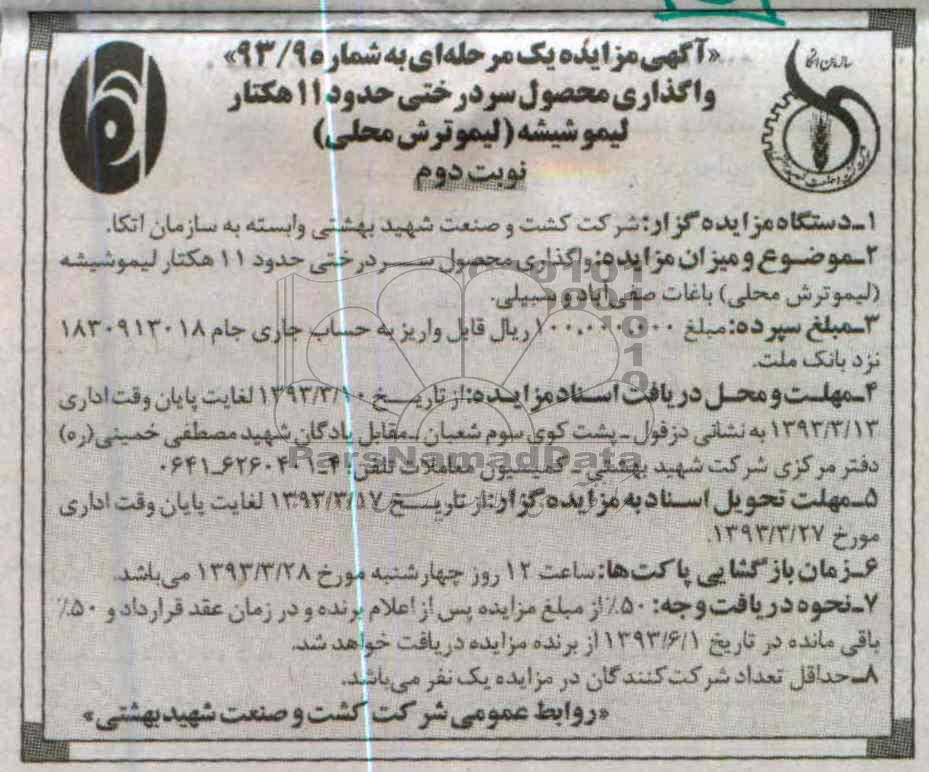 سازمان اتکا
«آگهی مزایده یک مرحله‌ای به شماره ۹۳/۹»
واگذاری محصول سردرختی حدود ۱۱ هکتار
لیمو شیشه (لیموترش محلی)
نوبت دوم
۱ـ دستگاه مزایده گزار: شرکت کشت و صنعت شهید بهشتی وابسته به سازمان اتکا.
۲ـ موضوع و میزان مزایده: واگذاری محصول سردرختی حدود ۱۱ هکتار لیموشیشه
(لیموترش محلی) باغات صفی‌آباد و سبیلی.
۳ـ مبلغ سپرده: مبلغ ۱۰۰,۰۰۰,۰۰۰ ریال قابل واریز به حساب جاری جام ۱۸۳۰۹۱۳۰۱۸
نزد بانک ملت.
۴ـ مهلت و محل دریافت اسناد مزایده: از تاریخ ۱۳۹۳/۳/۱۰ لغایت پایان وقت اداری
۱۳۹۳/۳/۱۳ به نشانی دزفول ـ پشت کوی سوم شعبان ـ مقابل پادگان شهید مصطفی خمینی (ره)
دفتر مرکزی شرکت شهید بهشتی ـ کمیسیون معاملات تلفن: ۴ـ۶۲۶۰۴۰۱ـ۰۶۴۱
ParsNamadData
۵ـ مهلت تحویل اسناد به مزایده گزار: از تاریخ ۱۳۹۳/۳/۱۷ لغایت پایان وقت اداری
مورخ ۱۳۹۳/۳/۲۷.
۶ـ زمان بازگشایی پاکت‌ها: ساعت ۱۲ روز چهارشنبه مورخ ۱۳۹۳/۳/۲۸ می‌باشد.
۷ـ نحوه دریافت وجه: ۵۰٪ از مبلغ مزایده پس از اعلام برنده و در زمان عقد قرارداد و ۵۰٪
باقی مانده در تاریخ ۱۳۹۳/۶/۱ از برنده مزایده دریافت خواهد شد.
۸ـ حداقل تعداد شرکت‌کنندگان در مزایده یک نفر می‌باشد.
«روابط عمومی شرکت کشت و صنعت شهید بهشتی»